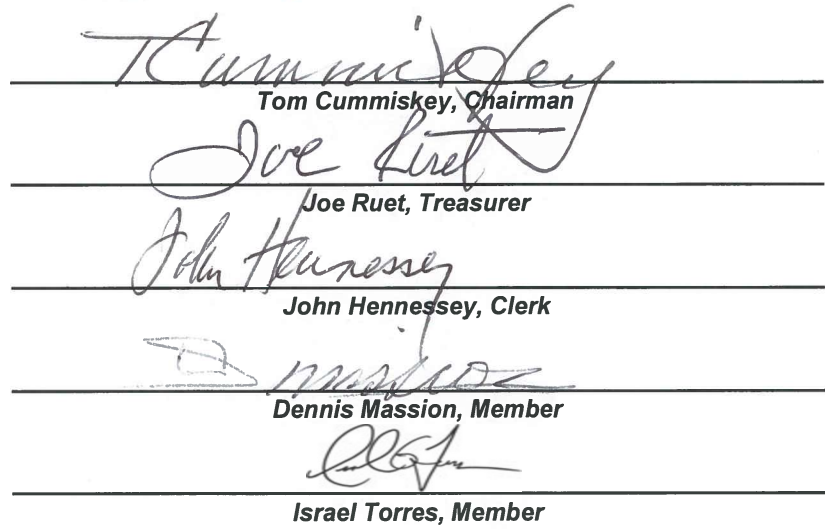 T Cummiskey
Tom Cummiskey, Chairman
Joe Ruet
Joe Ruet, Treasurer
John Hennessey
John Hennessey, Clerk
D
Dennis Massion, Member
Israel Torres, Member